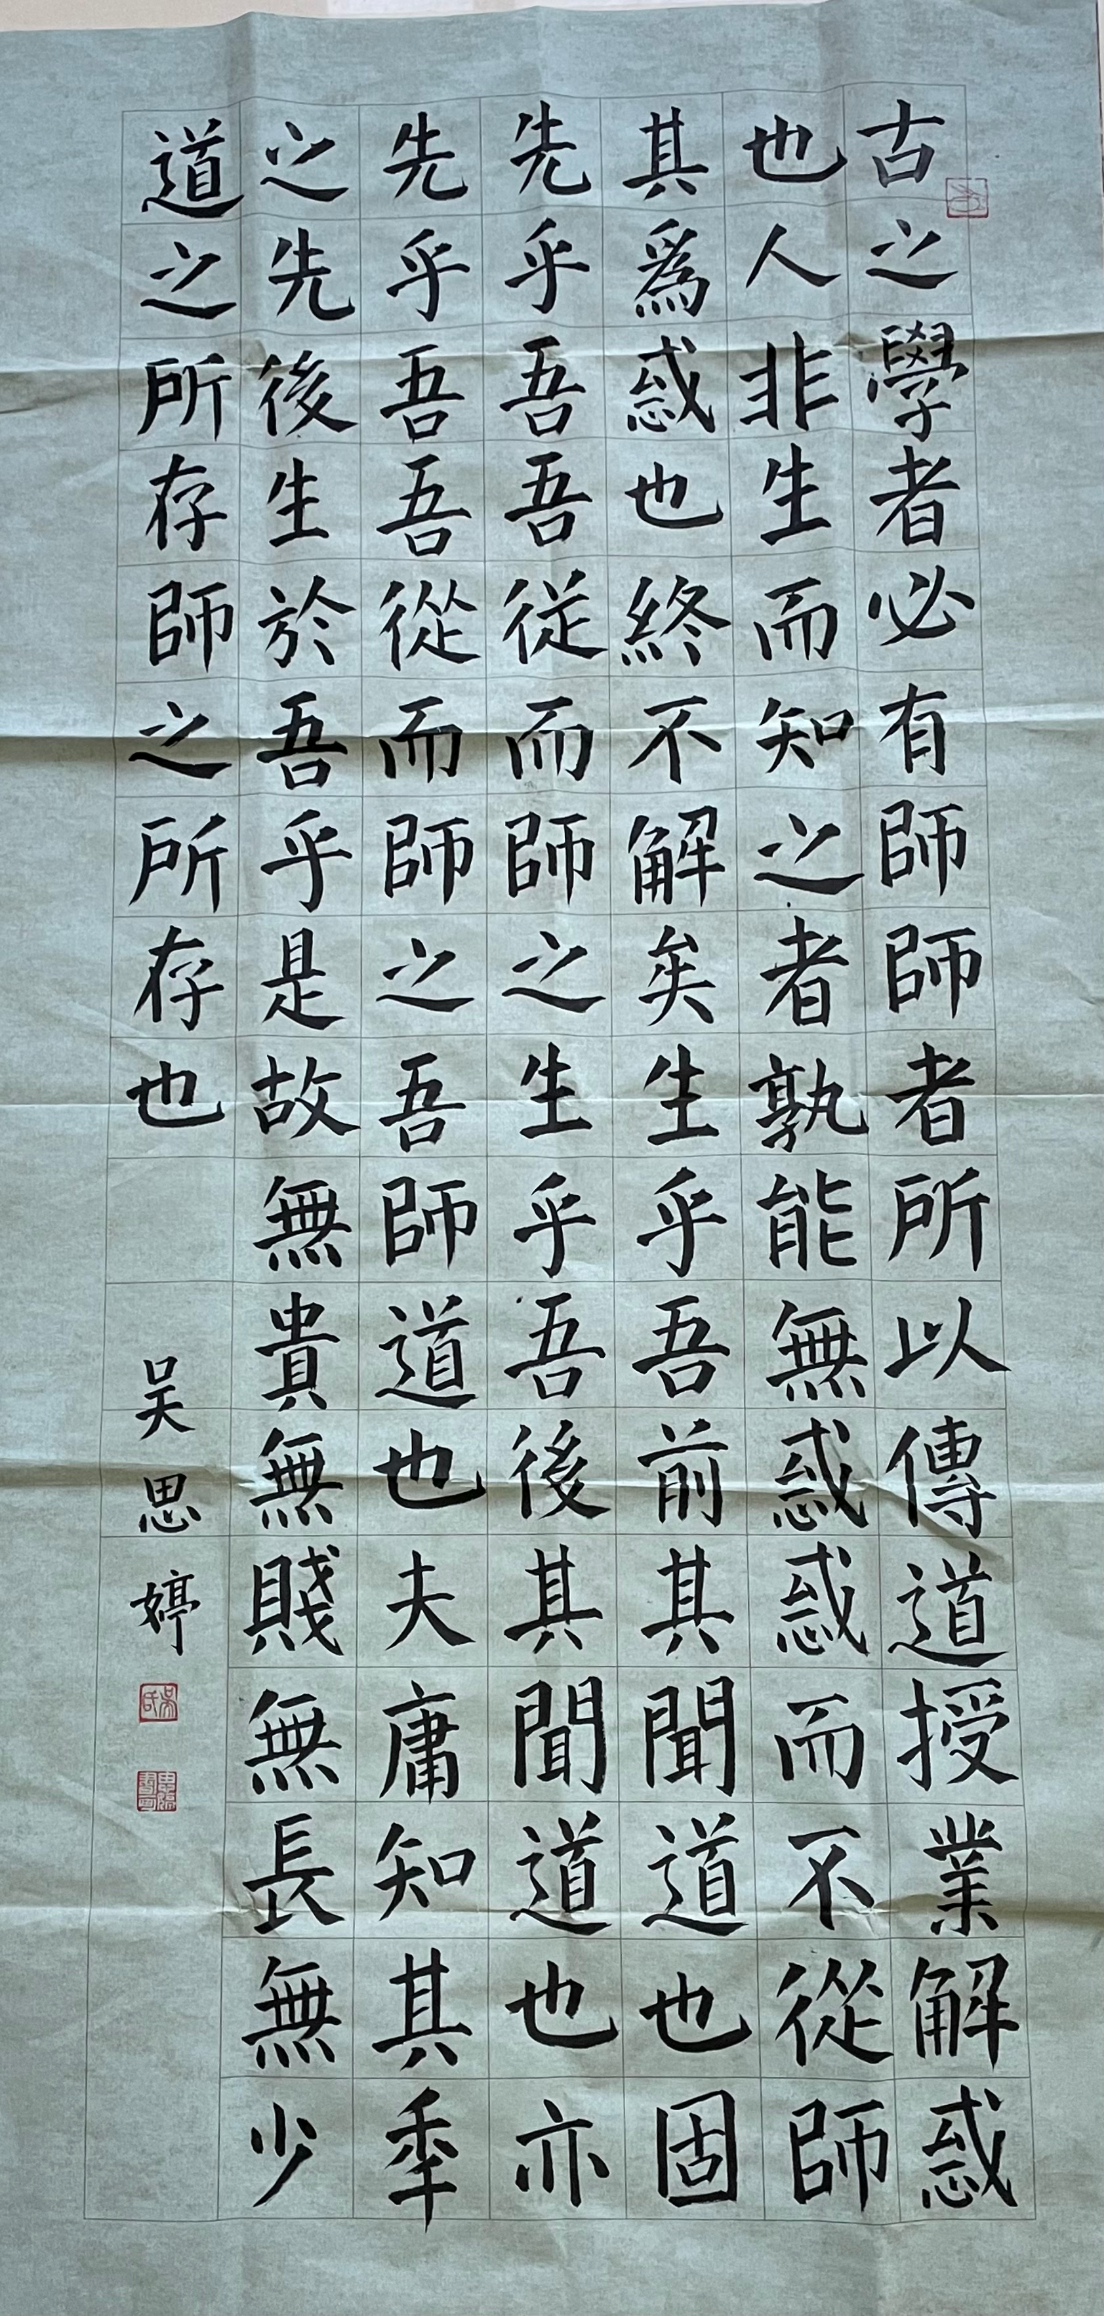 古之學者必有師師者所以傳道授業解惑
也人非生而知之者孰能無惑惑而不從師
其爲惑也終不解矣生乎吾前其聞道也固
先乎吾吾從而師之生乎吾後其聞道也亦
先乎吾吾從而師之吾師道也夫庸知其秊
之先後生於吾乎是故無貴無賤無長無少
道之所存師之所存也
吴思婷
吴氏